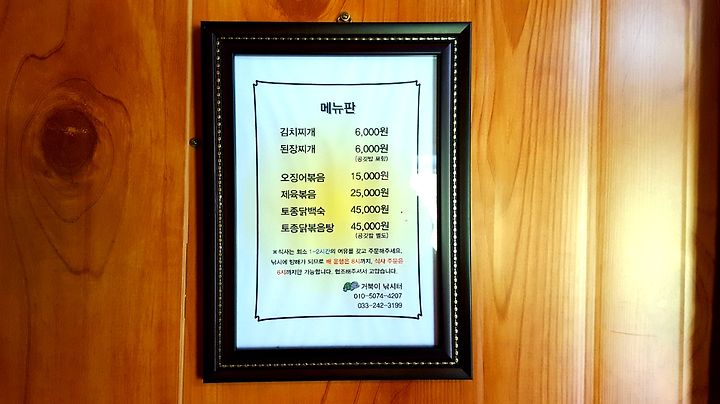 메뉴판
김치찌개 6,000원
된장찌개 6,000원
(공깃밥 포함)
오징어볶음 15,000원
제육볶음 25,000원
토종닭백숙 45,000원
토종닭볶음탕 45,000원
(공깃밥 별도)
※ 식사는 최소 1~2시간의 여유를 갖고 주문해주세요.
낚시에 방해가 되므로 배 운행은 8시까지, 식사 주문은
6시까지만 가능합니다. 협조해주셔서 고맙습니다.
거북이 낚시터
010-5074-4207
033-242-3199